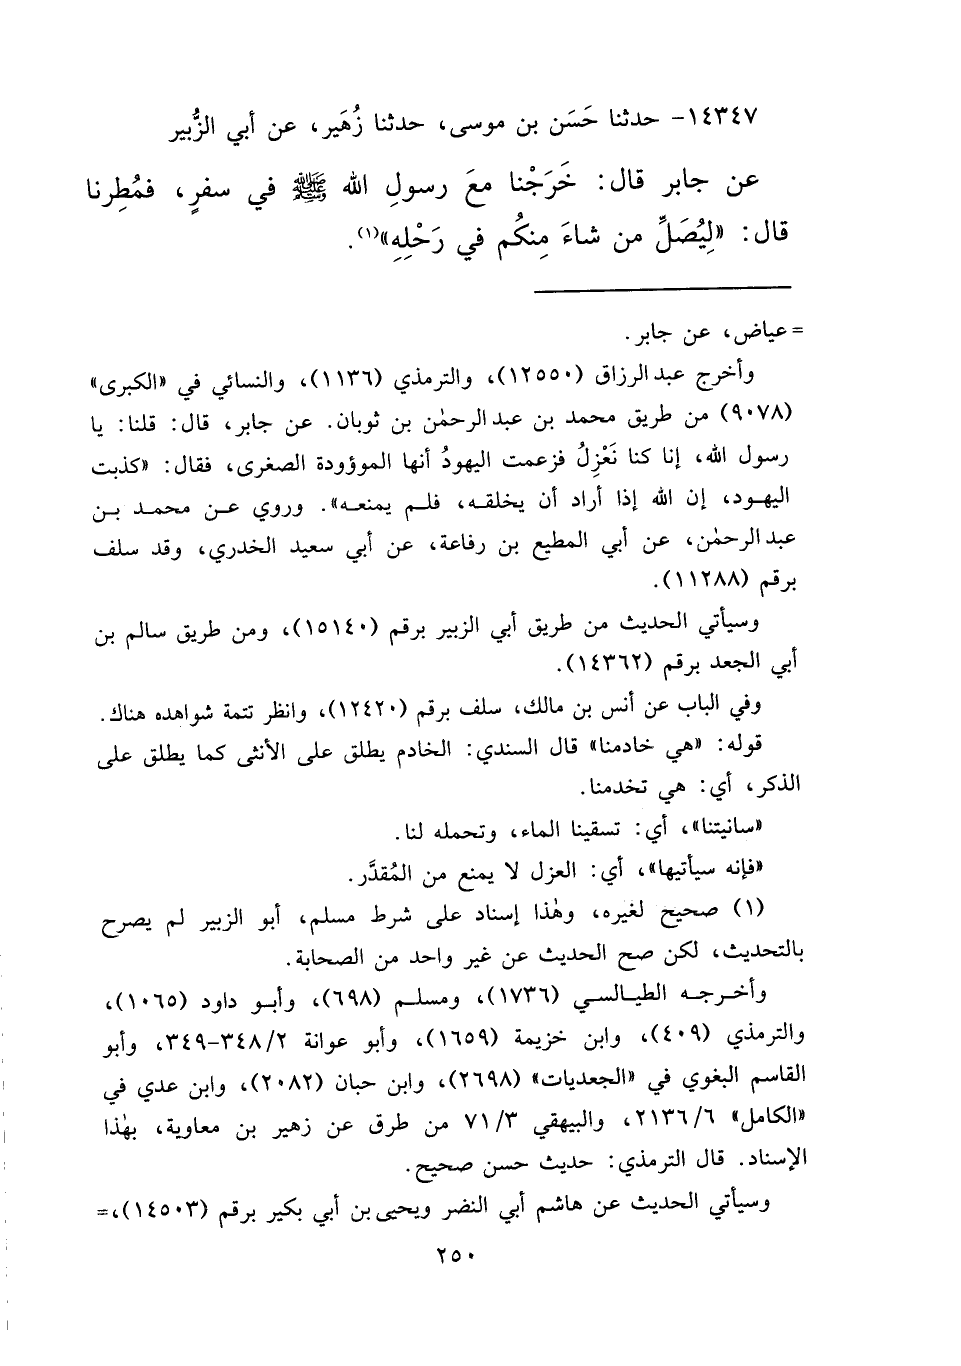 ١٤٣٤٧- حدثنا حَسَن بن موسى، حدثنا زُهَير، عن أبي الزُّبير
عن جابر قال: خَرَجْنا معَ رسولِ الله ﷺ في سفرٍ، فمُطِرنا
قال: «لِيُصَلِّ من شاءَ مِنكُم في رَحْلِهِ»(١).
=عياض، عن جابر.
وأخرج عبد الرزاق (١٢٥٥٠)، والترمذي (١١٣٦)، والنسائي في «الكبرى»
(٩٠٧٨) من طريق محمد بن عبد الرحمٰن بن ثوبان. عن جابر، قال: قلنا: يا
رسول الله، إنا كنا نَعْزِلُ فزعمت اليهودُ أنها الموؤودة الصغرى، فقال: «كذبت
اليهود، إن الله إذا أراد أن يخلقه، فلم يمنعه». وروي عن محمد بن
عبد الرحمٰن، عن أبي المطيع بن رفاعة، عن أبي سعيد الخدري، وقد سلف
برقم (١١٢٨٨).
وسيأتي الحديث من طريق أبي الزبير برقم (١٥١٤٠)، ومن طريق سالم بن
أبي الجعد برقم (١٤٣٦٢).
وفي الباب عن أنس بن مالك، سلف برقم (١٢٤٢٠)، وانظر تتمة شواهده هناك.
قوله: «هي خادمنا» قال السندي: الخادم يطلق على الأنثى كما يطلق على
الذكر، أي: هي تخدمنا.
«سانيتنا»، أي: تسقينا الماء، وتحمله لنا.
«فإنه سيأتيها»، أي: العزل لا يمنع من المُقدَّر.
(١) صحيح لغيره، وهٰذا إسناد على شرط مسلم، أبو الزبير لم يصرح
بالتحديث، لكن صح الحديث عن غير واحد من الصحابة.
وأخرجه الطيالسي (١٧٣٦)، ومسلم (٦٩٨)، وأبو داود (١٠٦٥)،
والترمذي (٤٠٩)، وابن خزيمة (١٦٥٩)، وأبو عوانة ٣٤٨/٢-٣٤٩، وأبو
القاسم البغوي في «الجعديات» (٢٦٩٨)، وابن حبان (٢٠٨٢)، وابن عدي في
«الكامل» ٢١٣٦/٦، والبيهقي ٧١/٣ من طرق عن زهير بن معاوية، بهٰذا
الإسناد. قال الترمذي: حديث حسن صحيح.
وسيأتي الحديث عن هاشم أبي النضر ويحيى بن أبي بكير برقم (١٤٥٠٣)،=
٢٥٠